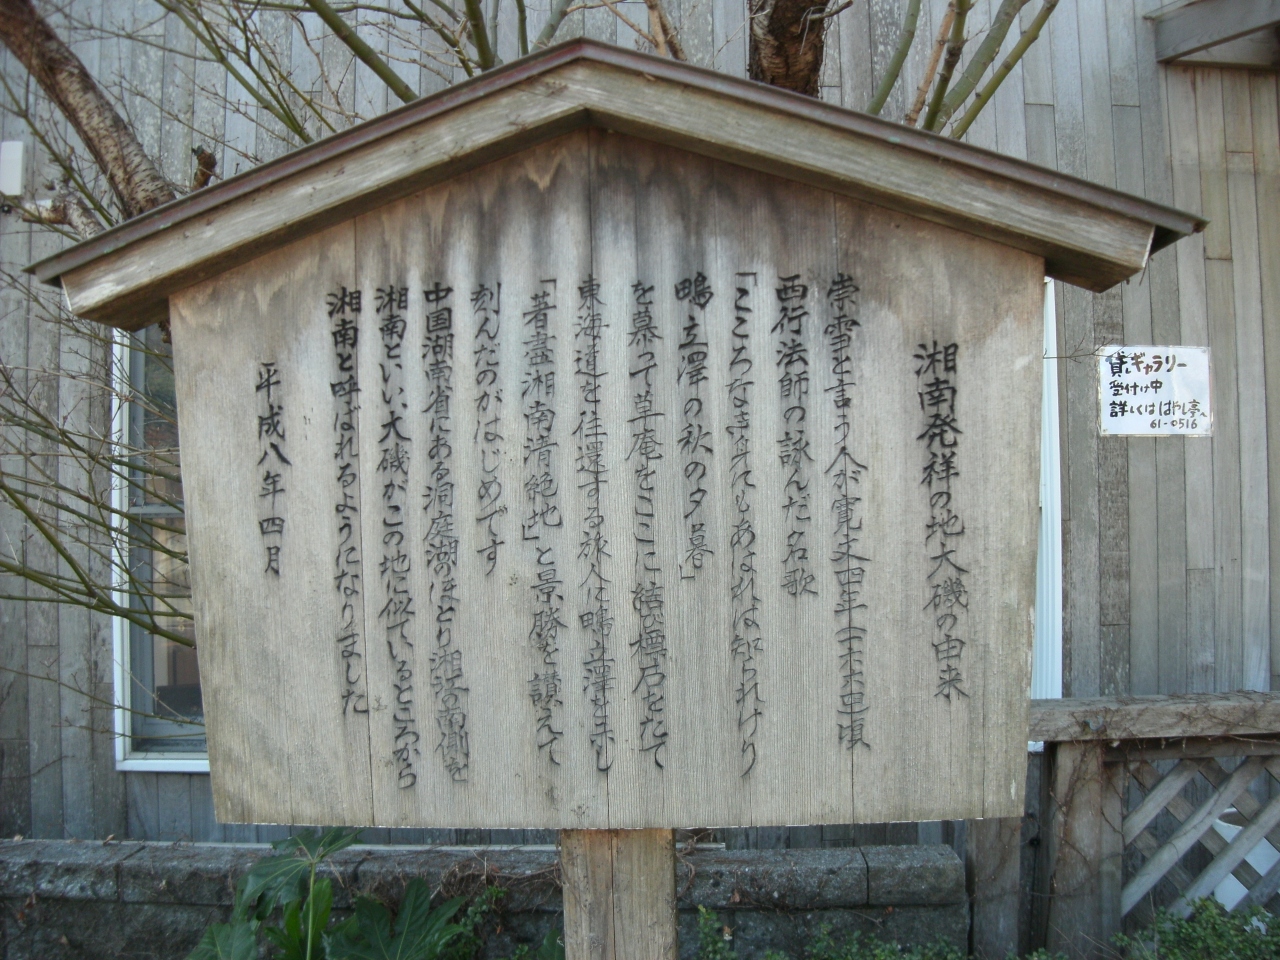 湘南発祥の地大磯の由来
崇雪と言う人が寛文四年(一六六四)東
西行法師の詠んだ名歌
「こころなき身にもあはれは知られけり
鴫立澤の秋の夕暮」
を慕って草庵をここに結び標石をたて
東海道を往還する旅人に鴫立澤を示し
「著盡湘南清絶地」と景勝を讃えて
刻んだのがはじめです
中国湖南省にある洞庭湖のほとり湘江の南側を
湘南といい、大磯がこの地に似ているところから
湘南と呼ばれるようになりました
平成八年四月
貸しギャラリー
受付け中
詳しくははやし亭へ
61-0516